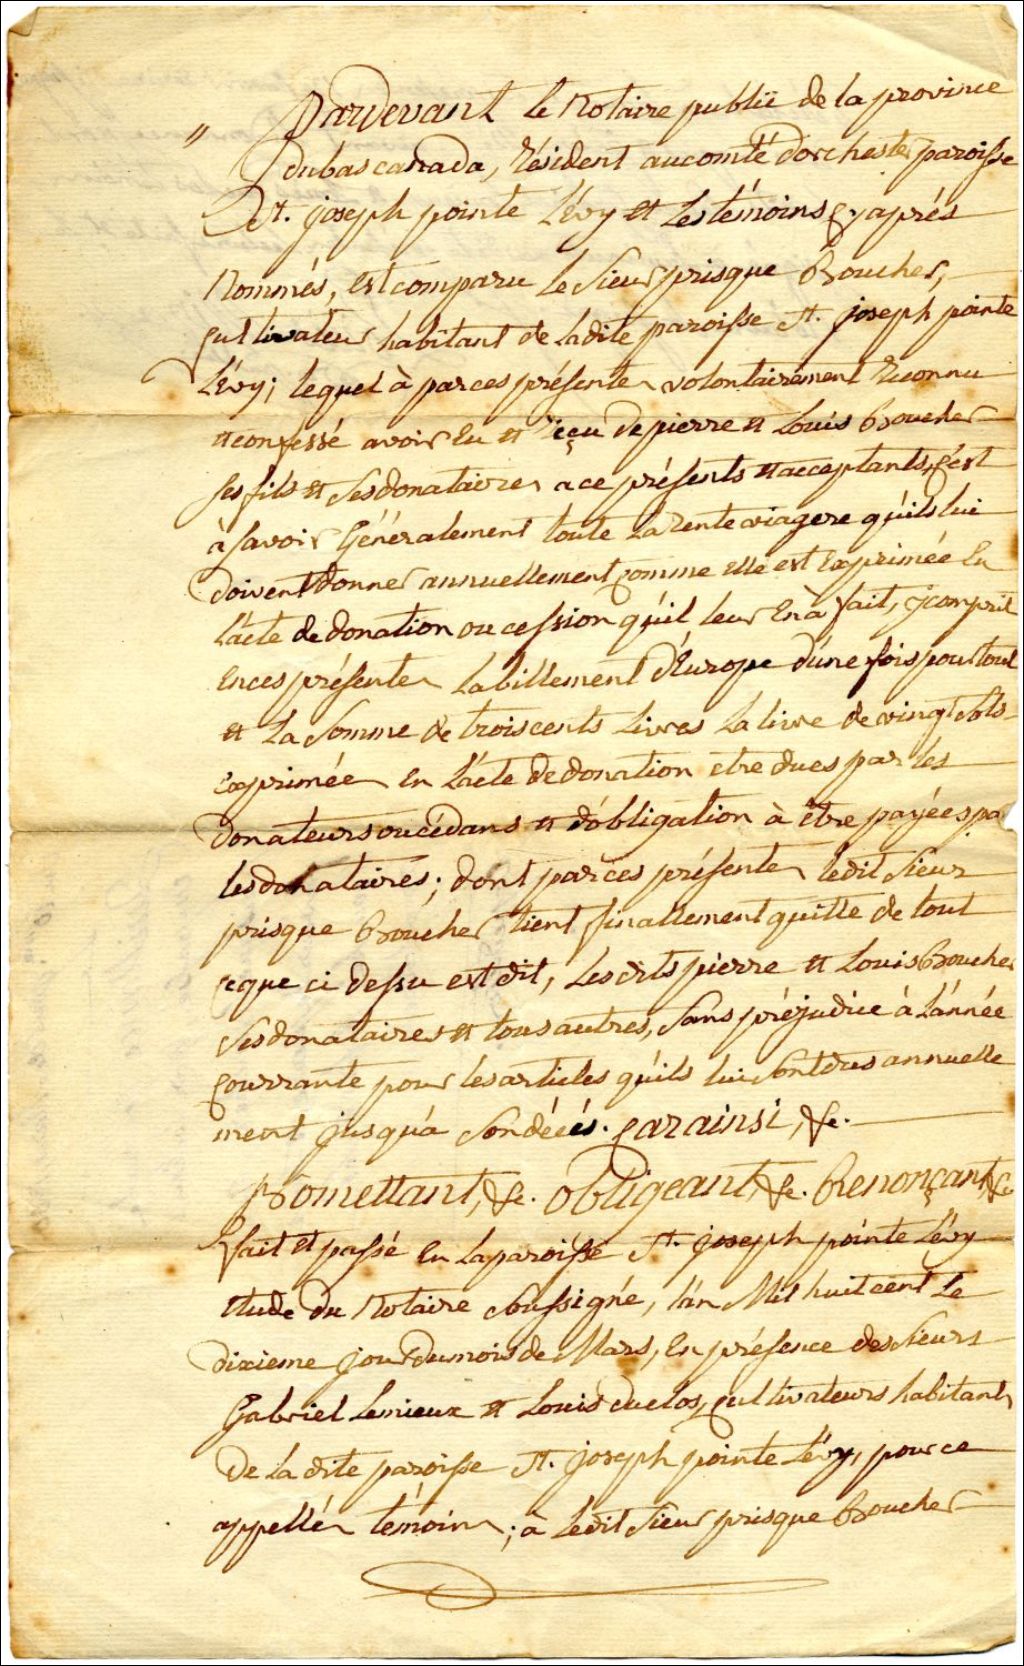 Pardevant le Notaire publië de la province
" du bas canada, Résident au comté dorchester paroisse
St. joseph pointe Lévy et Les témoins çy après
Nommés, est comparu le Sieur prisque Boucher,
Cultivateur habitant de ladite paroisse St. joseph pointe
Lévy; lequel à par ces présentes volontairement Reconnu
et confessé avoir Eu et Reçu de pierre et Louis Boucher
ses fils et Ses donataires a ce présents et acceptants, C'est
à savoir Généralement toute La Rente viagere qu'ils lui
doivent donner annuellement comme Elle est Exprimée En
l'acte de donation ou cession qu'il leur En à fait, ÿ comprit
En ces présentes Labillement d'Europe d'une fois pour tout
et La Somme de trois cents Livres La livre de vingt Sols
Exprimée En L'acte de donation etre dues par les
donateurs ou cédans et d'obligation à être payées pa
les donataires; dont par ces présentes ledit Sieur
prisque Boucher tient finallement quitte de tout
ce que ci dessu est dit, Les dits pierre et Louis Boucher
Ses donataires et tous autres, Sans préjudice à L'année
Courrante pour les articles qu'ils lui Sont dus annuelle
ment jusqu'a Son décés. Car ainsi, &c.
Promettant, &c. Obligeant, &c. Renonçant &c
fait Et passé En La paroisse St. joseph pointe Lévy
Etude du Notaire Soussigné, l'an Mil huit cent Le
dixieme jour du mois de Mars, En présence des Sieurs
Gabriel Lemieux et Louis duclos, cultivateurs habitants
De La dite paroisse St. joseph pointe Lévy, pour ce
appellés témoins; à Ledit Sieur prisque Boucher